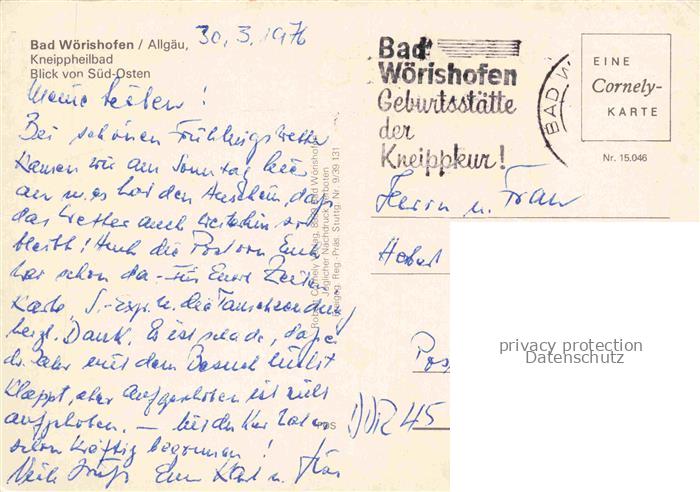 30.3.1976
Bad Wörishofen / Allgäu,
Kneippheilbad
Blick von Süd-Osten
Meine Lieben!
Bei schönem Frühlingswetter
kamen wir am Sonntag hier
an u. es hat den Anschein, daß
das Wetter auch weiterhin so
bleibt! Auch die Post von Euch
war schon da. Für Eure Zeilen,
Karte, die Tauschsendung
herzl. Dank. Es ist schade, daß
Jahr mit dem Besuch nicht
klappt, aber aufgeschoben ist nicht
aufgehoben. – bei der Kur haben
schon kräftig begonnen!
Viele Grüße Euer Karl u.
Cornely Verlag, Bad Wörishofen
Jeglicher Nachdruck verboten
Reg.-Präs. Stuttg. Nr. 9/39 131
Bad
Wörishofen
Geburtsstätte
der
Kneippkur!
BAD W
EINE
Cornely-
KARTE
Nr. 15.046
Herrn u. Frau
Pos
DDR 45
privacy protection
Datenschutz